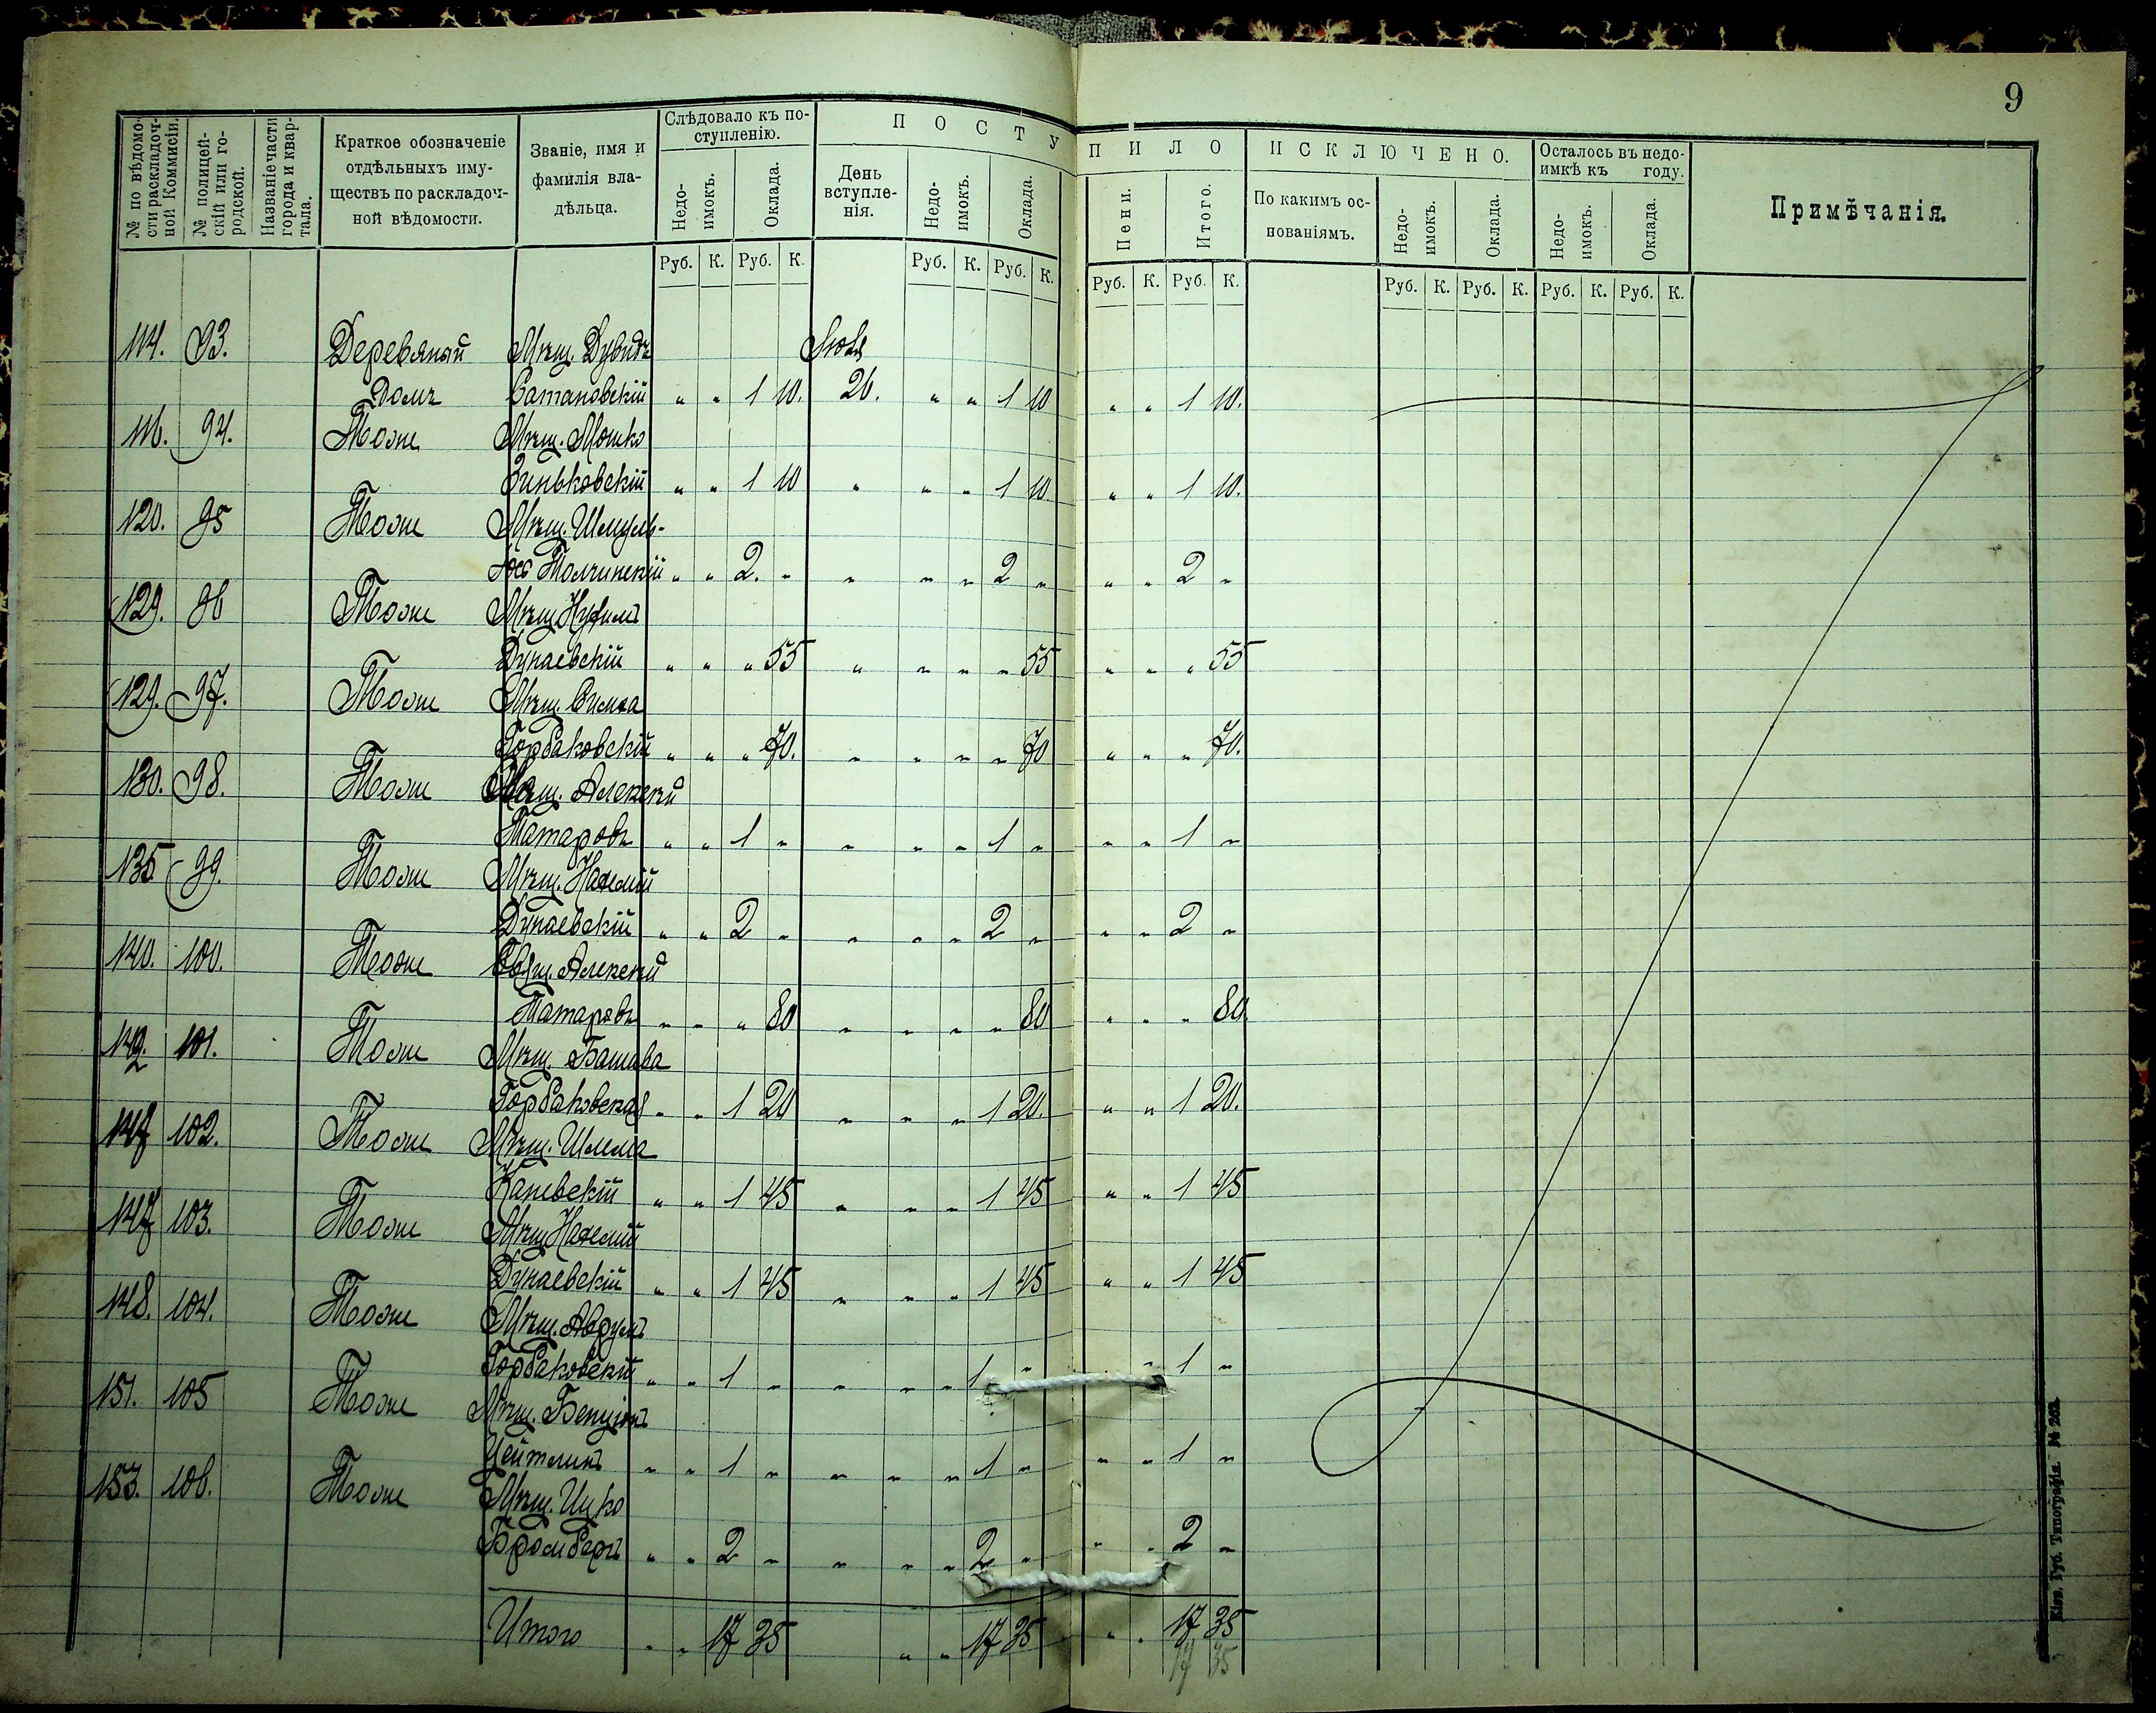 9
№ по вѣдомо-
сти раскладоч-
ной Коммисіи.
№ полицей-
скій или го-
родской.
Названіе части
города и квар-
тала.
Краткое обозначеніе
отдѣльныхъ иму-
ществъ по раскладоч-
ной вѣдомости.
Званіе, имя и
фамилія вла-
дѣльца.
Слѣдовало къ по-
ступленію.
Недо-
имокъ.
Оклада.
ПОСТУ
День
вступле-
нія.
Недо-
имокъ.
Оклада.
ПИЛО
Пени.
Итого.
ИСКЛЮЧЕНО.
По какимъ ос-
нованіямъ.
Недо-
имокъ.
Оклада.
Осталось въ недо-
имкѣ къ году.
Недо-
имокъ.
Оклада.
Примѣчанія.
Руб. К. Руб. К. Руб. К. Руб. К. Руб. К. Руб. К. Руб. К. Руб. К. Руб. К. Руб. К.
114. 93. Деревяный Мѣщ. Дувидъ Іюля
домъ Сатановскій " " 1 10. 26. " " 1 10 " " 1 10.
116. 94. Тоже Мѣщ. Мошко
Зиньковскій " " 1 10 " " " 1 10. " " 1 10.
120. 95 Тоже Мѣщ. Шмуль-
Толчинскій " " 2. " " " " 2 " " " 2 "
129. 96 Тоже Мѣщ. Нухимъ
Дунаевскій " " " 55 " " " " 55 " " " 55
129. 97. Тоже Мѣщ. Симха
Горбаковскій " " " 70. " " " " 70 " " " 70.
130. 98. Тоже Алексѣй
Татаровъ " " 1 " " " " 1 " " " 1 "
135 99. Тоже Мѣщ.
Дунаевскій " " 2 " " " " 2 " " " 2 "
140. 100. Тоже Алексѣй
Татаровъ " " " 80 " " " " 80 " " " 80.
142. 101. Тоже Мѣщ. Башева
Горбаковская " " 1 20 " " " 1 20. " " 1 20.
147 102. Тоже Мѣщ. Шлема
Каневскій " " 1 45 " " " 1 45 " " 1 45
147 103. Тоже Мѣщ.
Дунаевскій " " 1 45 " " " 1 45 " " 1 45
148. 104. Тоже Мѣщ. Аврумъ
Горбаковскій " " 1 " " " " 1 " " 1 "
151. 105 Тоже Мѣщ. Бенціонъ
Цейтлинъ " " 1 " " " " 1 " " " 1 "
153. 106. Тоже Мѣщ. Ицко
Бромбергъ " " 2 " " " " 2 " " " 2 "
Итого " " 17 35 " " 17 35 " " 17 35
17 35
Кіев. Губ. Типографія. № 262.